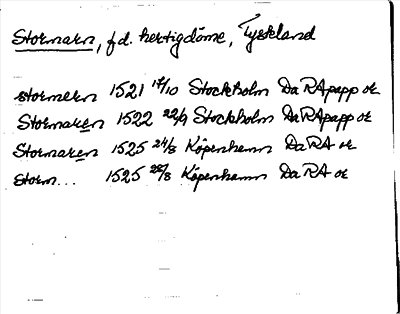 Stormarn, f.d. hertigdöme, Tyskland
stormern 1521 17/10 Stockholm Da RA papp or
Stormaren 1522 22/9 Stockholm Da RA papp or
Stormaren 1525 24/8 Köpenhamn Da RA or
Storm... 1525 28/8 Köpenhamn Da RA or